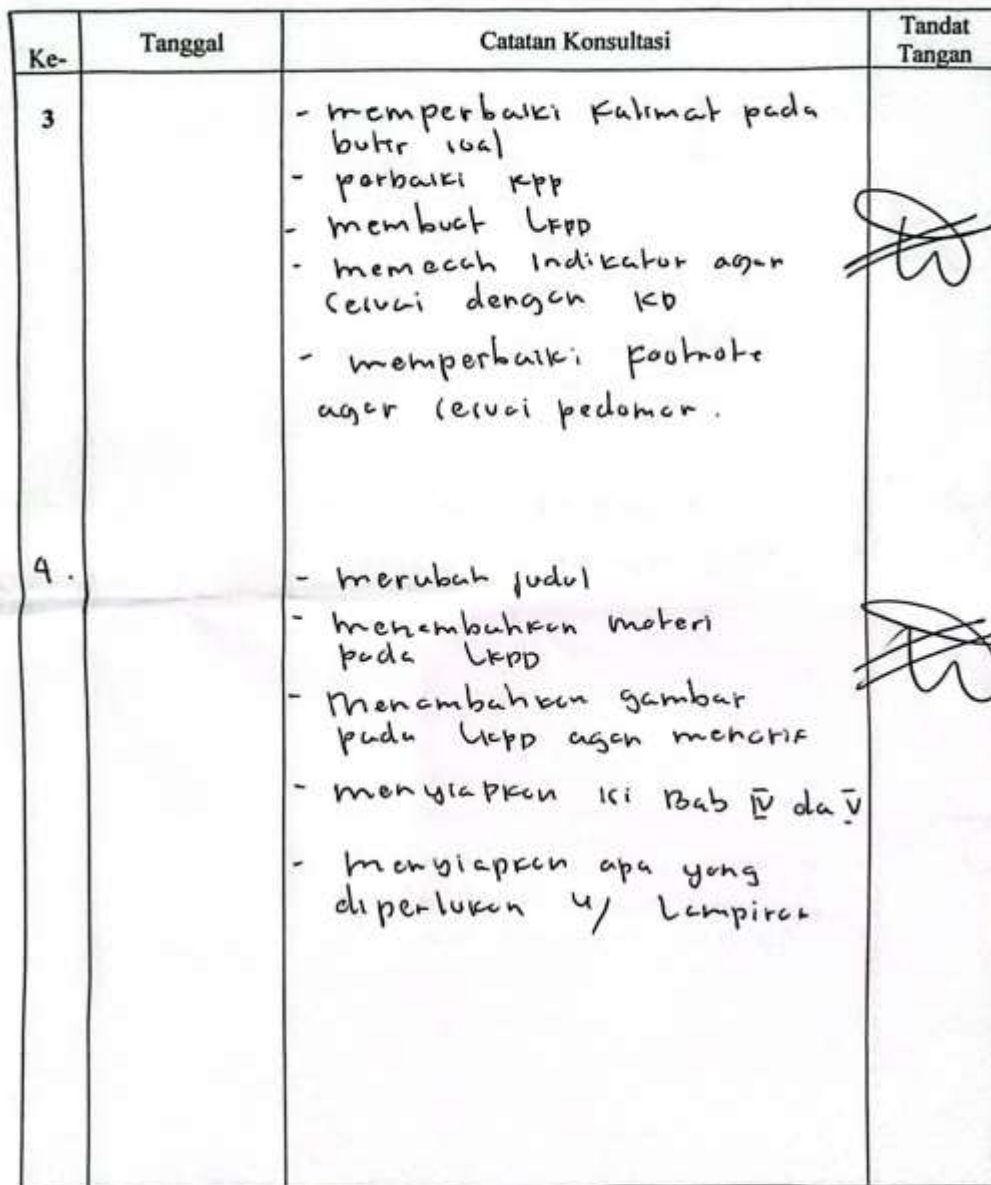 Ke-
Tanggal
Catatan Konsultasi
Tandat
Tangan
3
- memperbaiki kalimat pada
butir soal
- perbaiki RPP
- membuat LKPD
- memecah indikator agar
sesuai dengan KD
- memperbaiki footnote
agar sesuai pedoman.
4.
- merubah judul
- menambahkan materi
pada LKPD
- Menambahkan gambar
pada LKPD agar menarik
- menyiapkan isi Bab IV da V
- menyiapkan apa yang
diperlukan u/ Lampiran